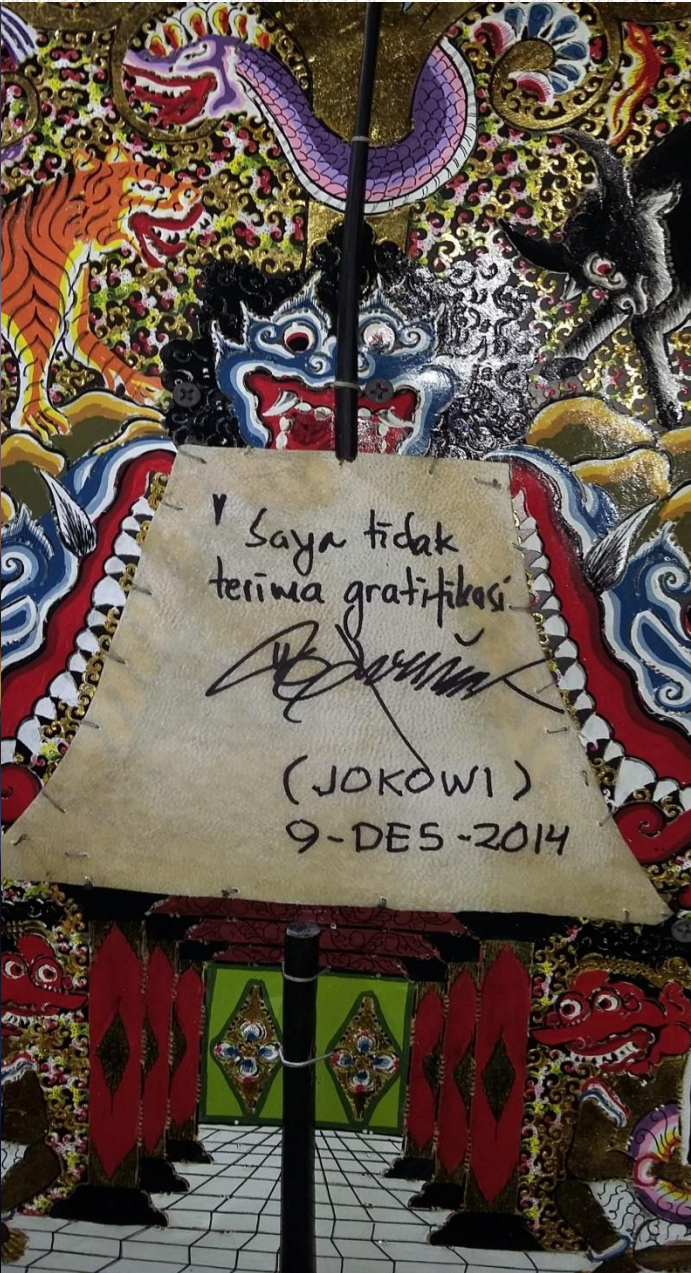 " Saya tidak
terima gratifikasi
(JOKOWI)
9-DES-2014